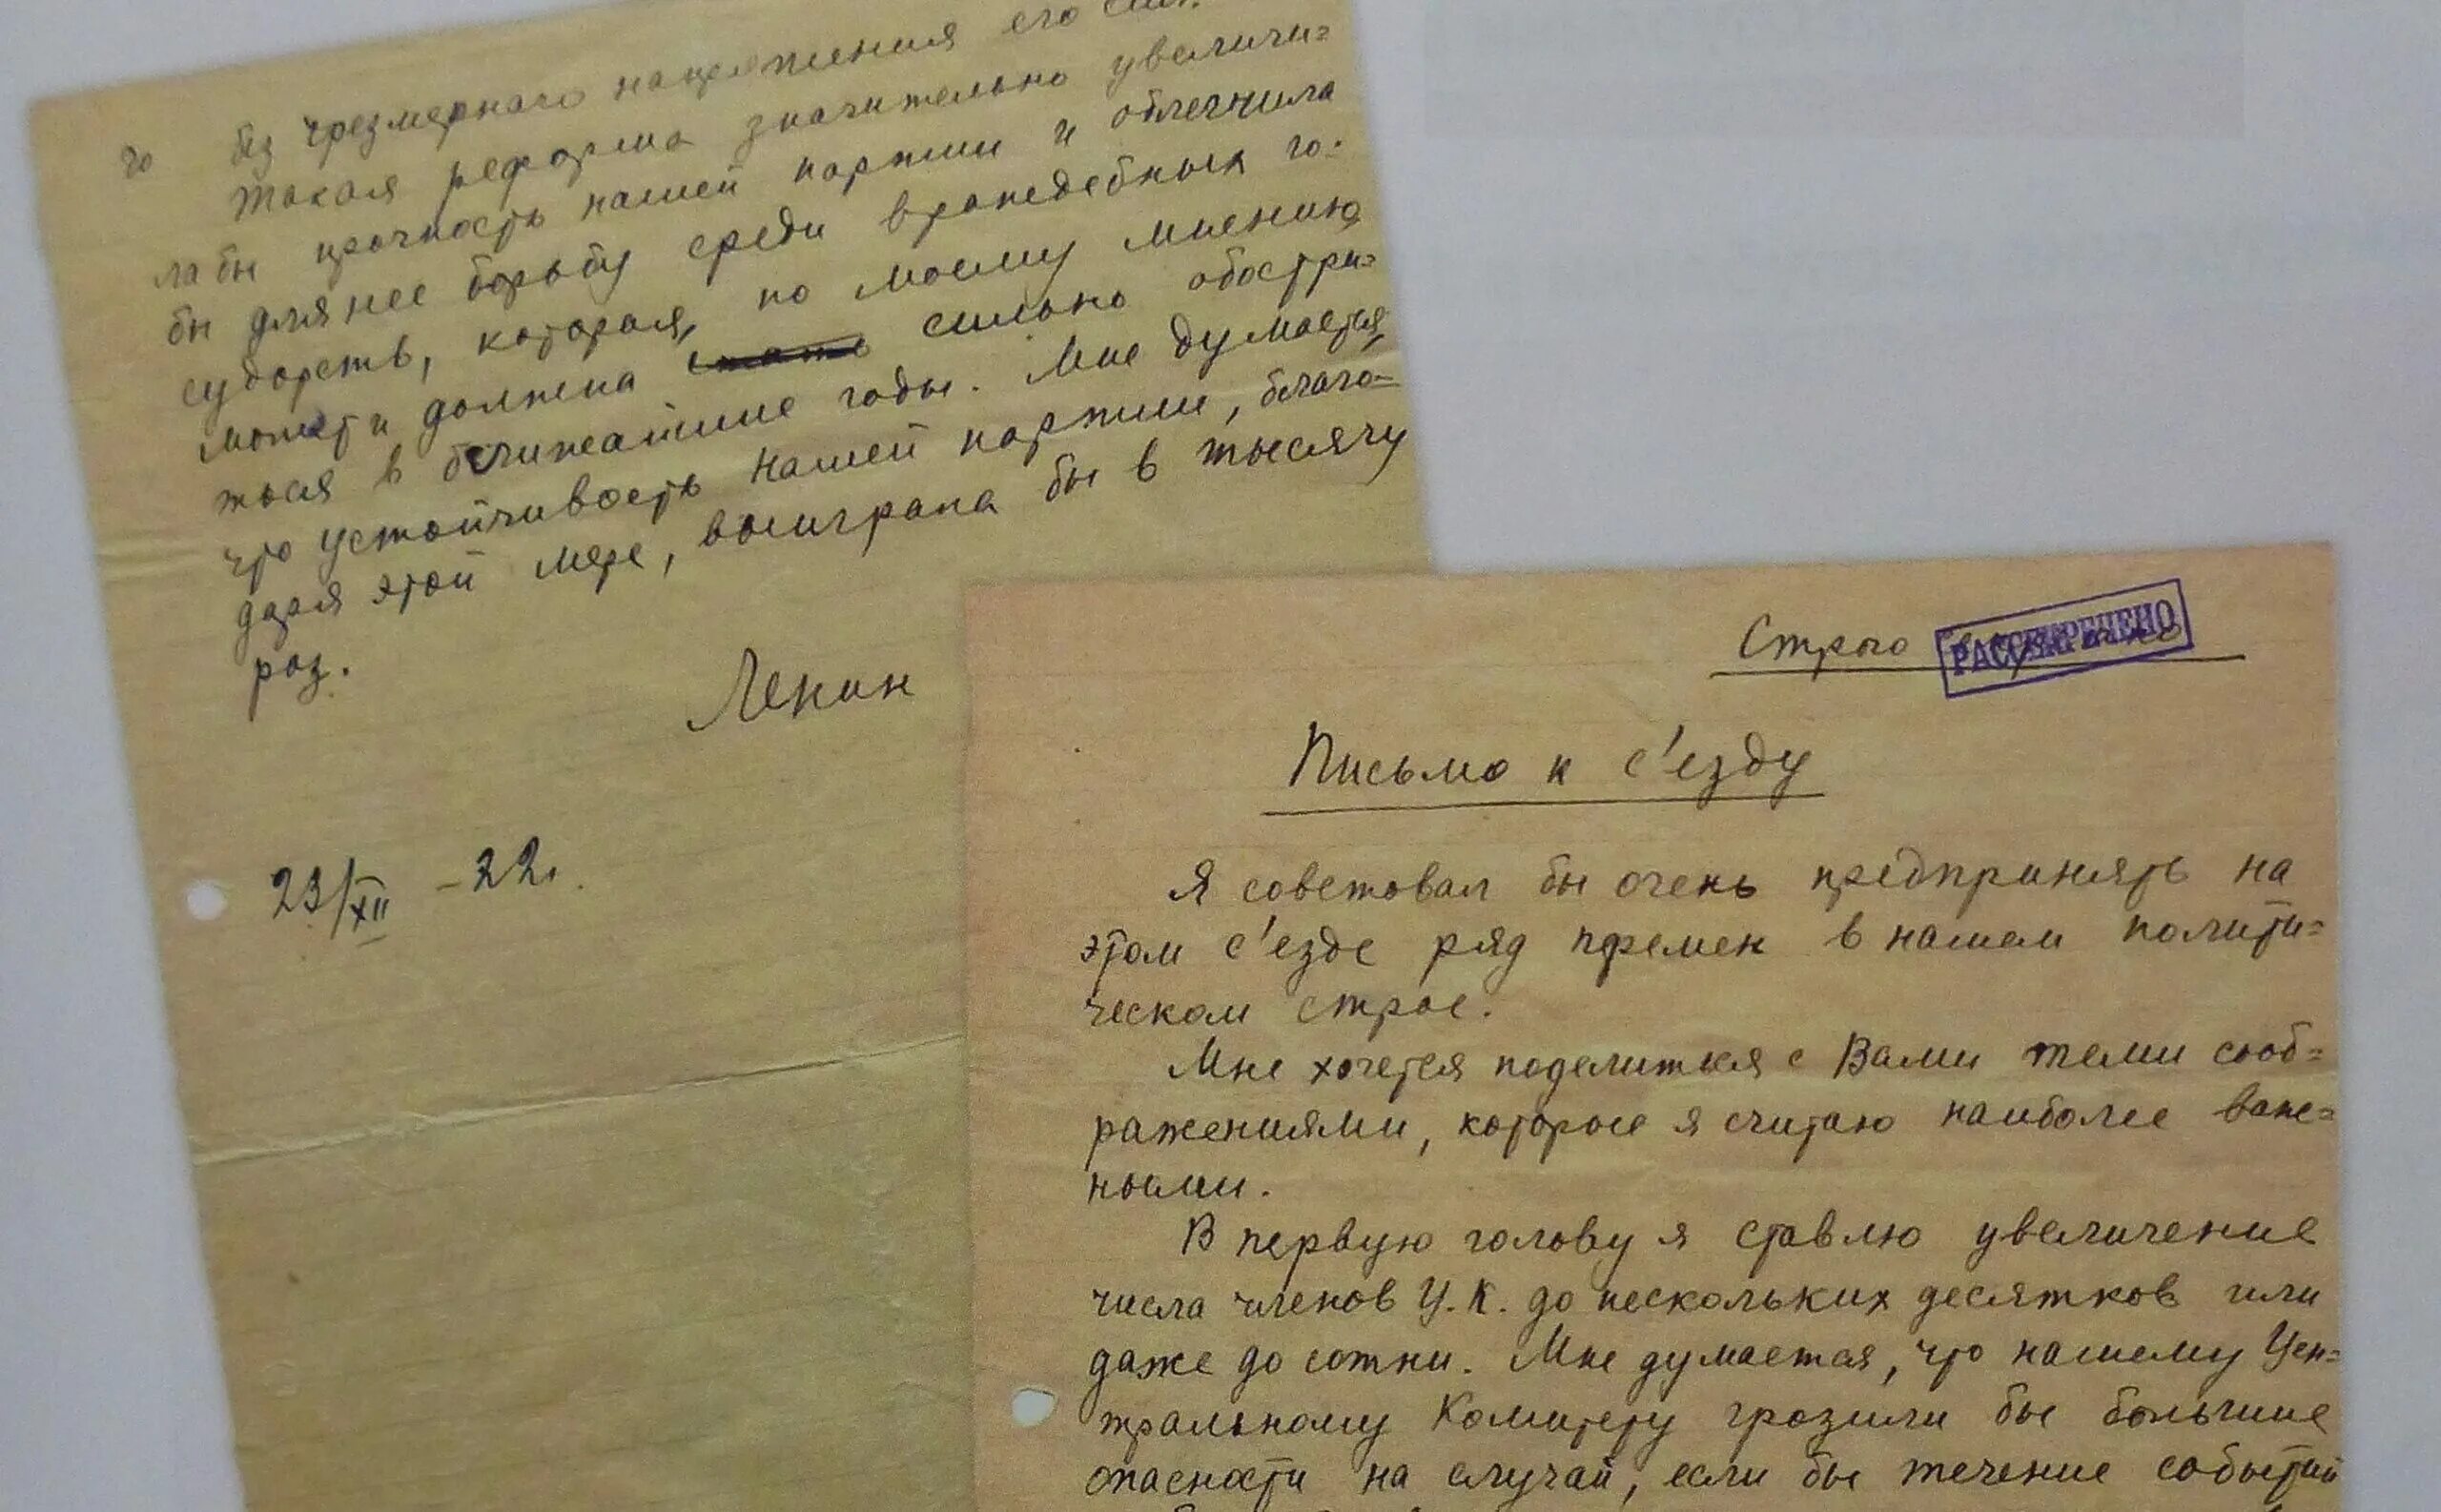 го без чрезмернаго напряжения его сил.
Такая реформа значительно увеличи=
ла бы прочность нашей партии и облегчила
бы для нее борьбу среди враждебных го=
сударств, которая, по моему мнению,
может и должна сильно обостри=
ться в ближайшие годы. Мне думается,
что устойчивость нашей партии, благо=
даря этой мере, выиграла бы в тысячу
раз.
Ленин
23/XII – 22г.
Строго
РАССЕКРЕЧЕНО
Письмо к с'езду
Я советовал бы очень предпринять на
этом с'езде ряд перемен в нашем полити=
ческом строе.
Мне хочется поделиться с Вами теми сооб=
ражениями, которые я считаю наиболее важ=
ными.
В первую голову я ставлю увеличение
числа членов Ц.К. до нескольких десятков или
даже до сотни. Мне думается, что нашему Цен=
тральному Комитету грозили бы большие
опасности на случай, если бы течение событий